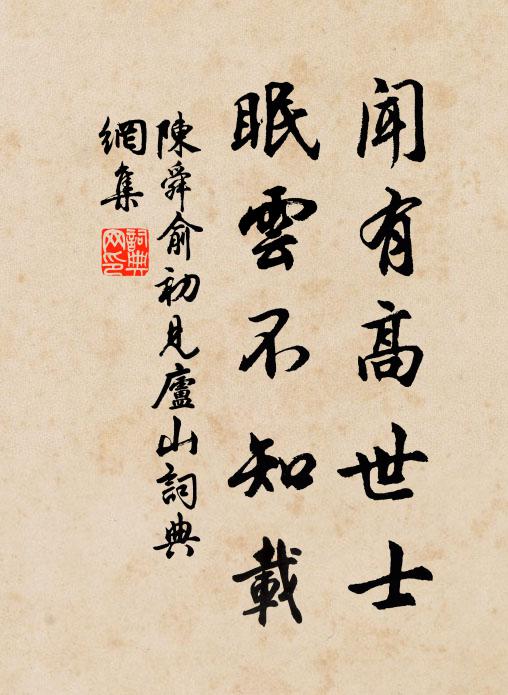 聞有高世士
眠雲不知載
陳舜俞初見廬山詞典
網集
詞典
网印